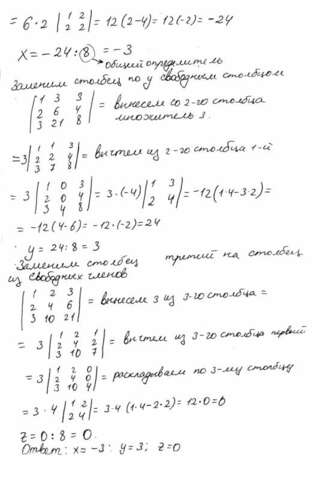 = 6·2 | 1 2 | = 12(2-4) = 12(-2) = -24
| 2 2 |
x = -24 : 8 = -3
общий определитель
Заменим столбец по y свободным столбцом
| 1 3 3 |
| 2 6 4 | = вынесем со 2-го столбца
| 3 21 8 | множитель 3.
| 1 1 3 |
= 3 | 2 2 4 | = вычтем из 2-го столбца 1-й
| 3 7 8 |
| 1 0 3 |
= 3 | 2 0 4 | = 3·(-4) | 1 3 | = -12(1·4-3·2) =
| 3 4 8 | | 2 4 |
= -12(4-6) = -12·(-2) = 24
y = 24 : 8 = 3
Заменим столбец третий на столбец
из свободных членов
| 1 2 3 |
| 2 4 6 | = вынесем 3 из 3-го столбца =
| 3 10 21 |
| 1 2 1 |
= 3 | 2 4 2 | = вычтем из 3-го столбца первый
| 3 10 7 |
| 1 2 0 |
= 3 | 2 4 0 | = раскладываем по 3-му столбцу
| 3 10 4 |
= 3·4 | 1 2 | = 3·4(1·4-2·2) = 12·0 = 0
| 2 4 |
z = 0 : 8 = 0.
Ответ: x = -3; y = 3; z = 0